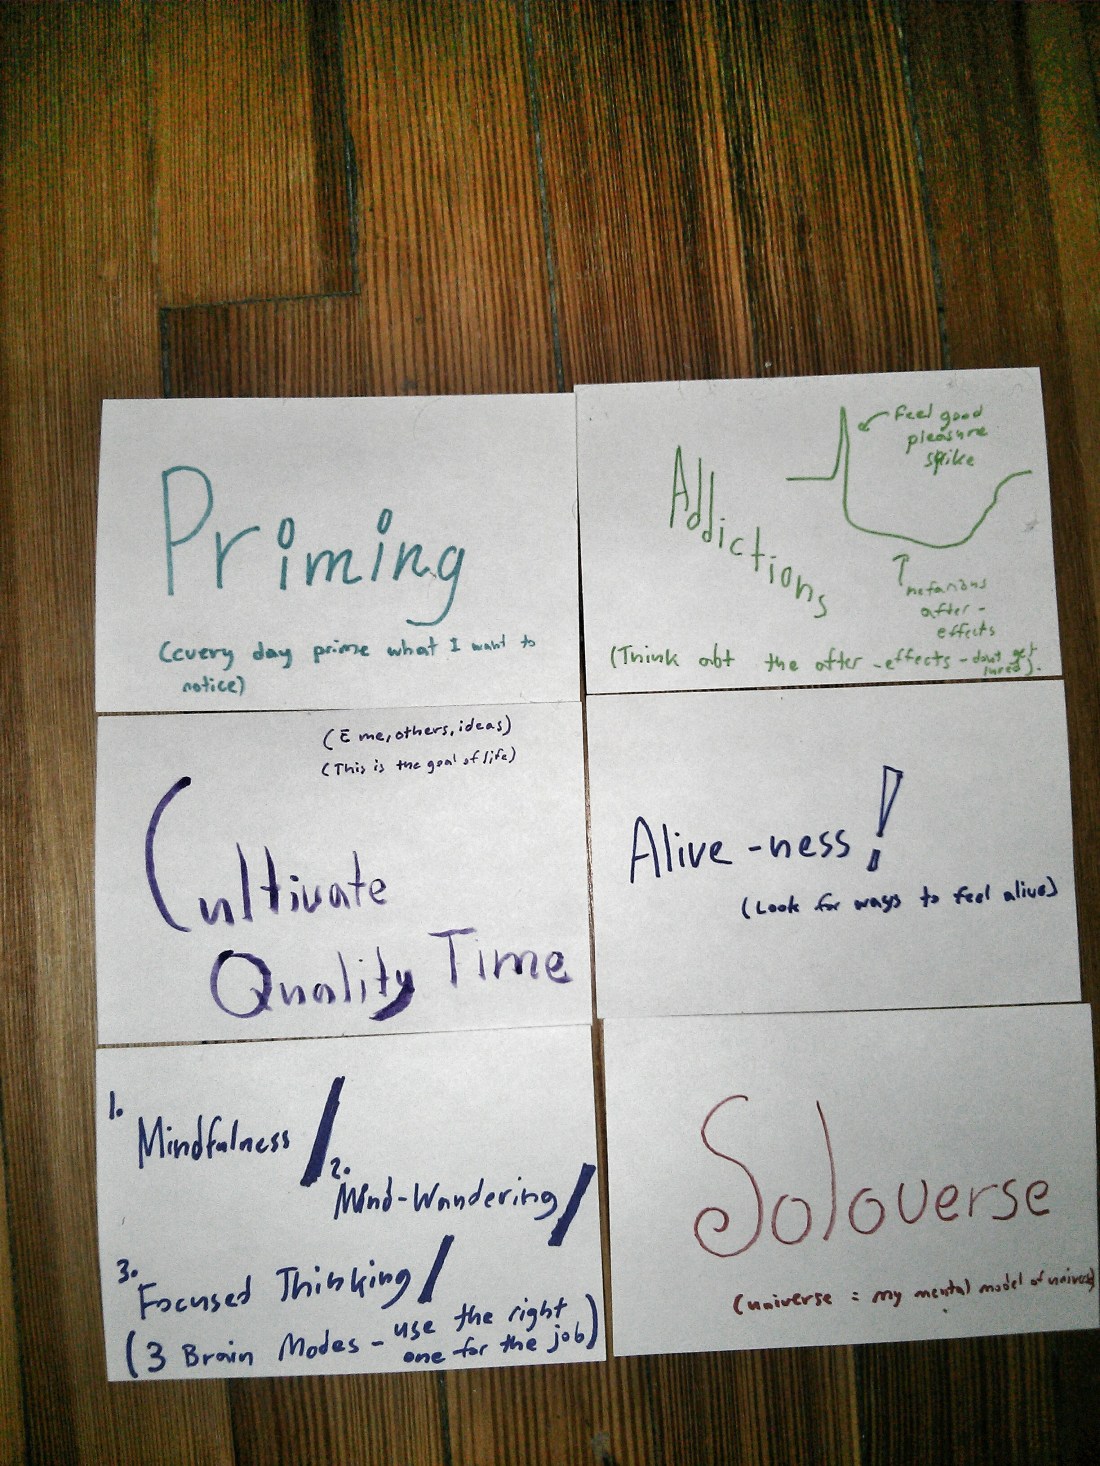 Priming
(every day prime what I want to
notice)
Addictions
feel good
pleasure
spike
nefarious
after-
effects
(Think abt the after-effects - don't get
lured).
(c̄ me, others, ideas)
(This is the goal of life)
Cultivate
Quality Time
Alive-ness!
(Look for ways to feel alive)
1.
Mindfulness /
2.
Mind-Wandering /
3.
Focused Thinking /
(3 Brain Modes - use the right
one for the job)
Soloverse
(universe = my mental model of universe)